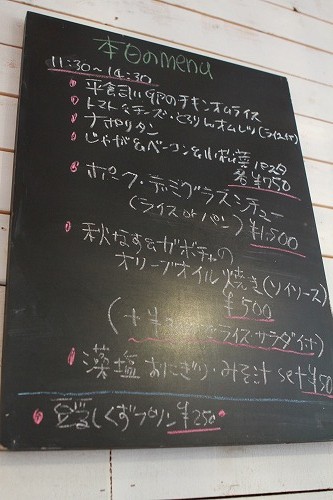 本日のmenu
11:30~14:30
のチキンオムライス
トマト&チーズ・とろりんオムレツ(ライス付)
ナポリタン
じゃが&ベーコン&小松菜パスタ
各¥750
ポーク・デミグラスシチュー
(ライスorパン) ¥1,500
秋なす&カボチャの
オリーブオイル焼き(ソイソース)
¥500
ライス・サラダ
藻塩おにぎり・みそ汁 set
くずプリン ¥250